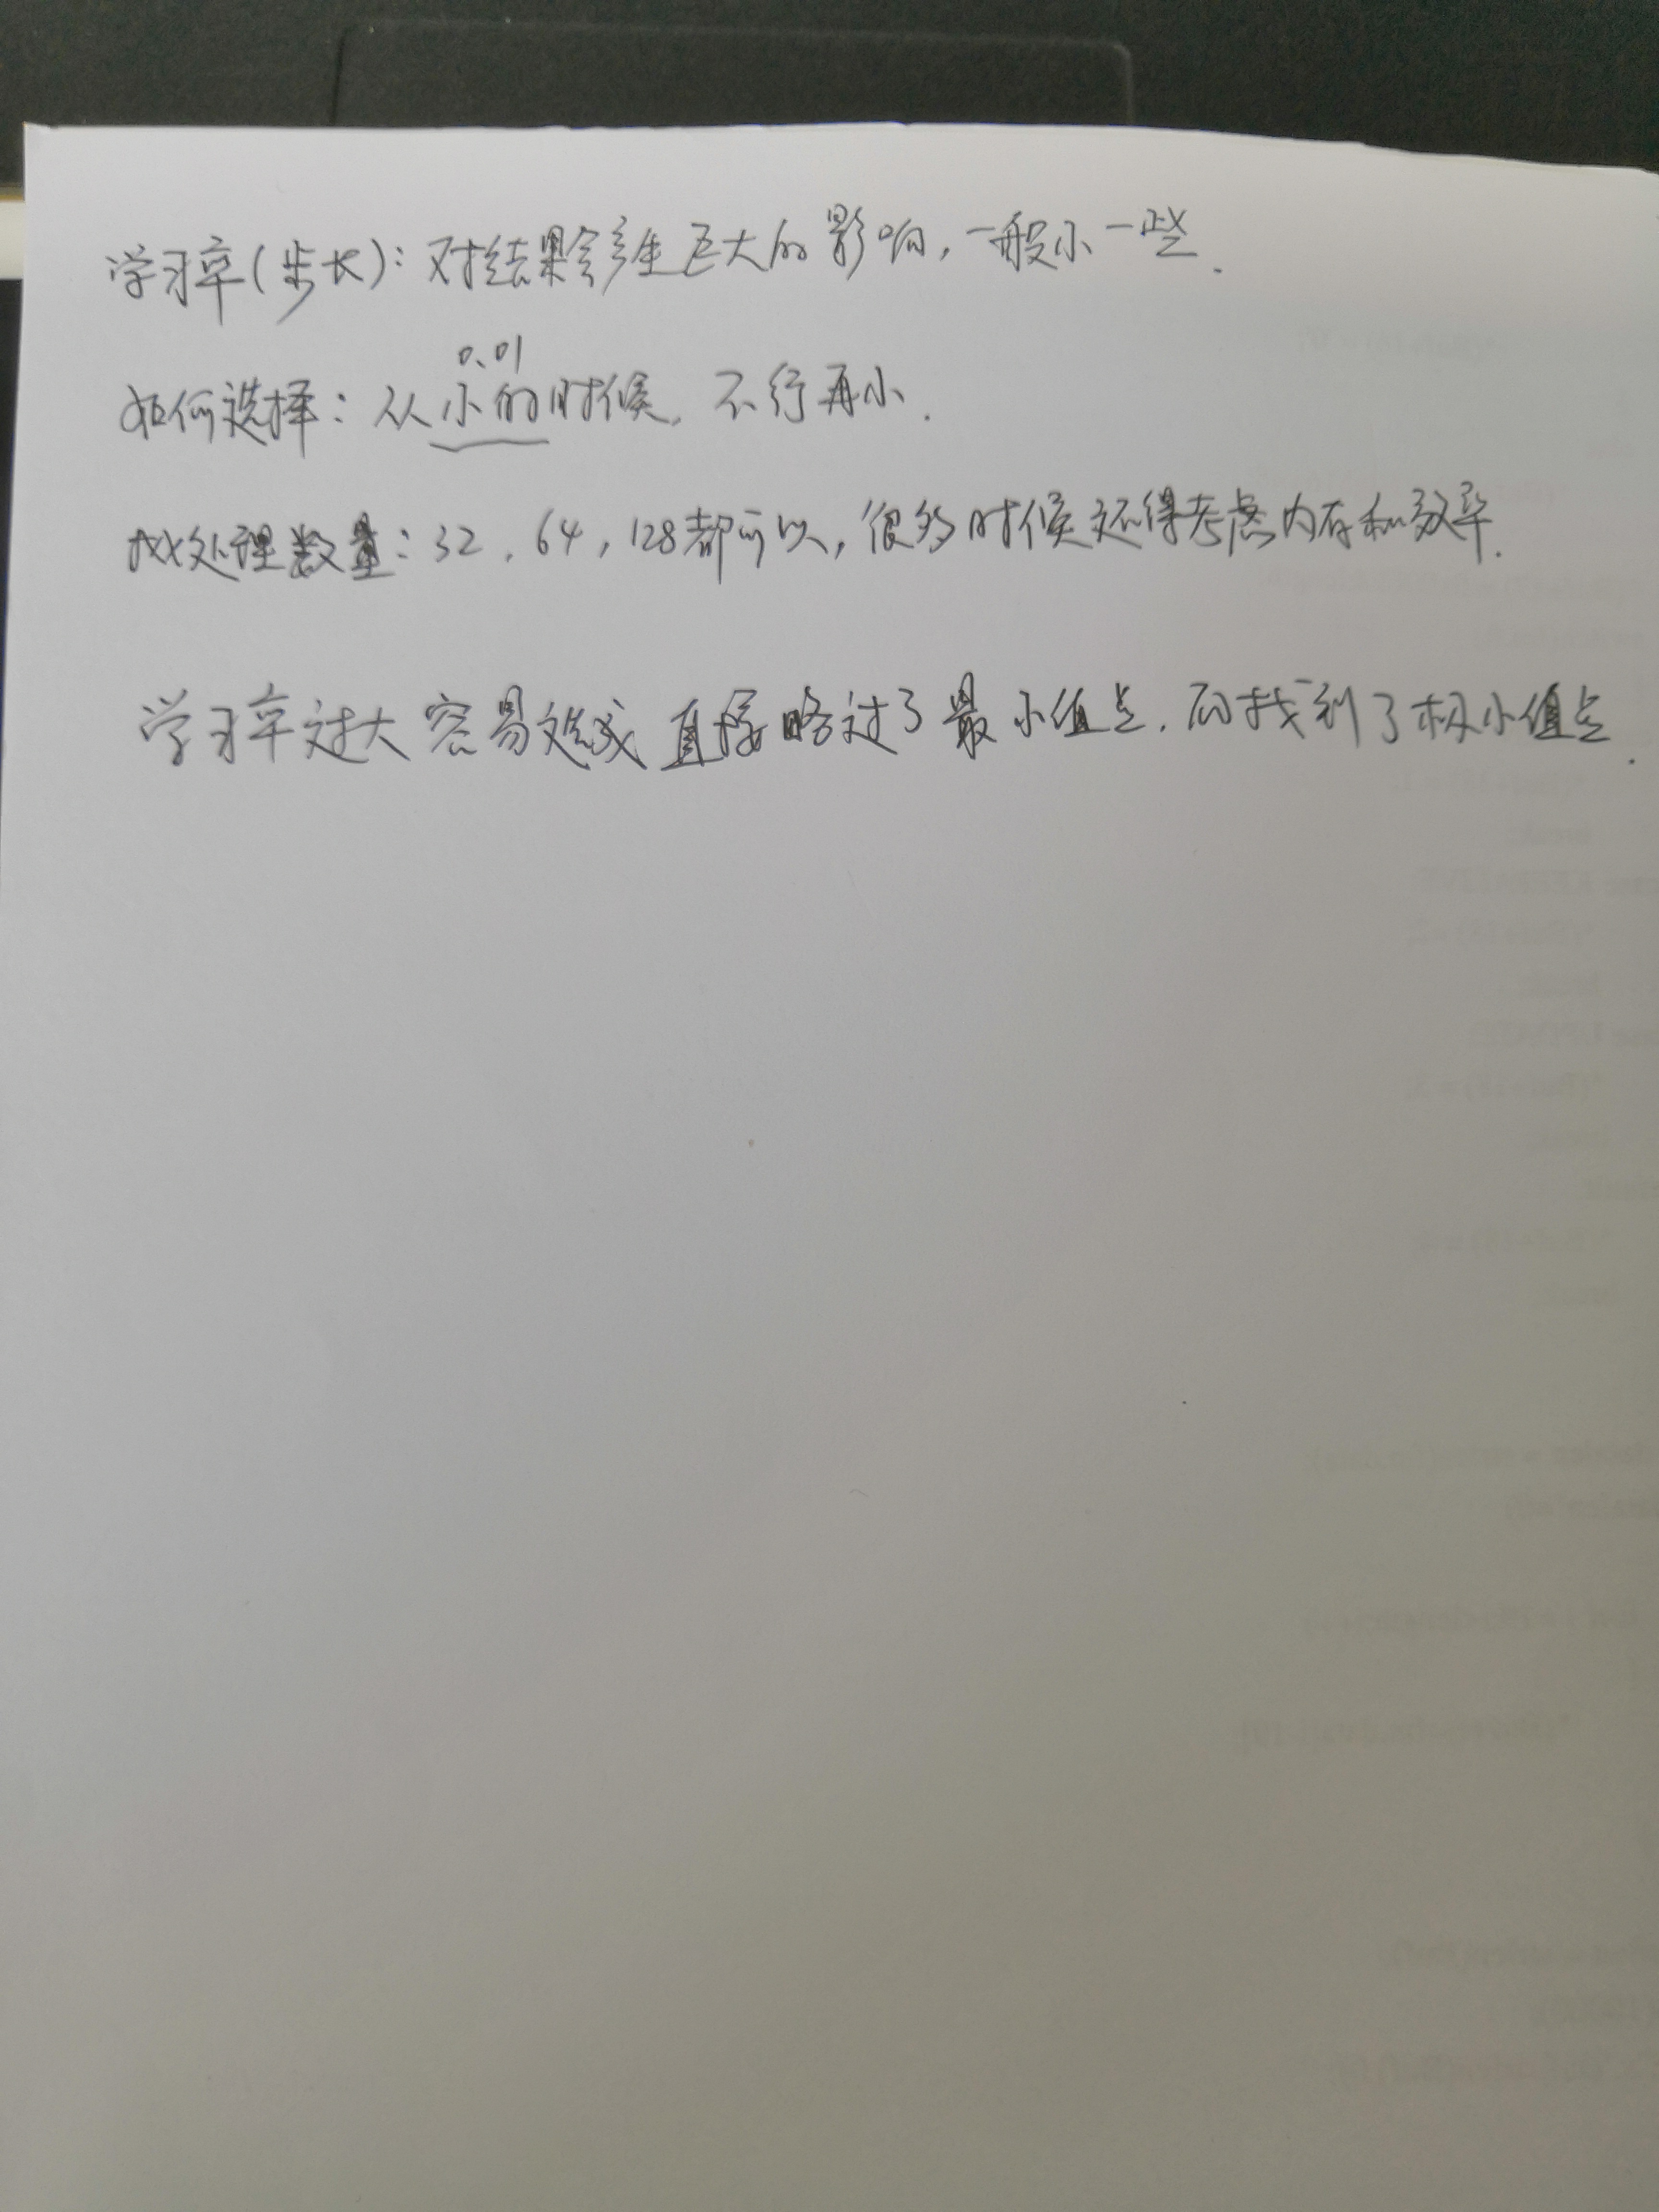 学习率(步长): 对结果会产生巨大的影响,一般小一些.
0.01
如何选择: 从小的时候,不行再小.
批处理数量: 32, 64, 128都可以, 很多时候还得考虑内存和效率.
学习率过大 容易造成 直接略过了最小值点.而找到了极小值点.